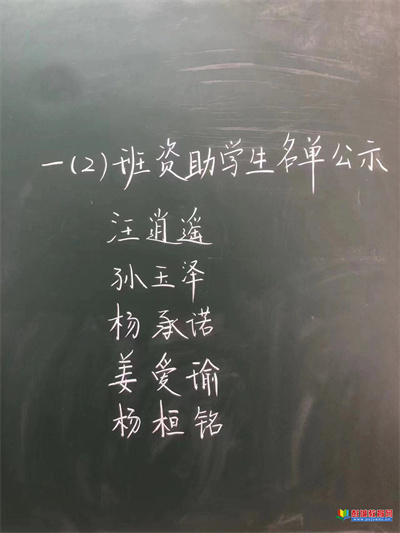 一(2)班资助学生名单公示
汪逍遥
孙玉泽
杨承诺
姜爱瑜
杨桓铭